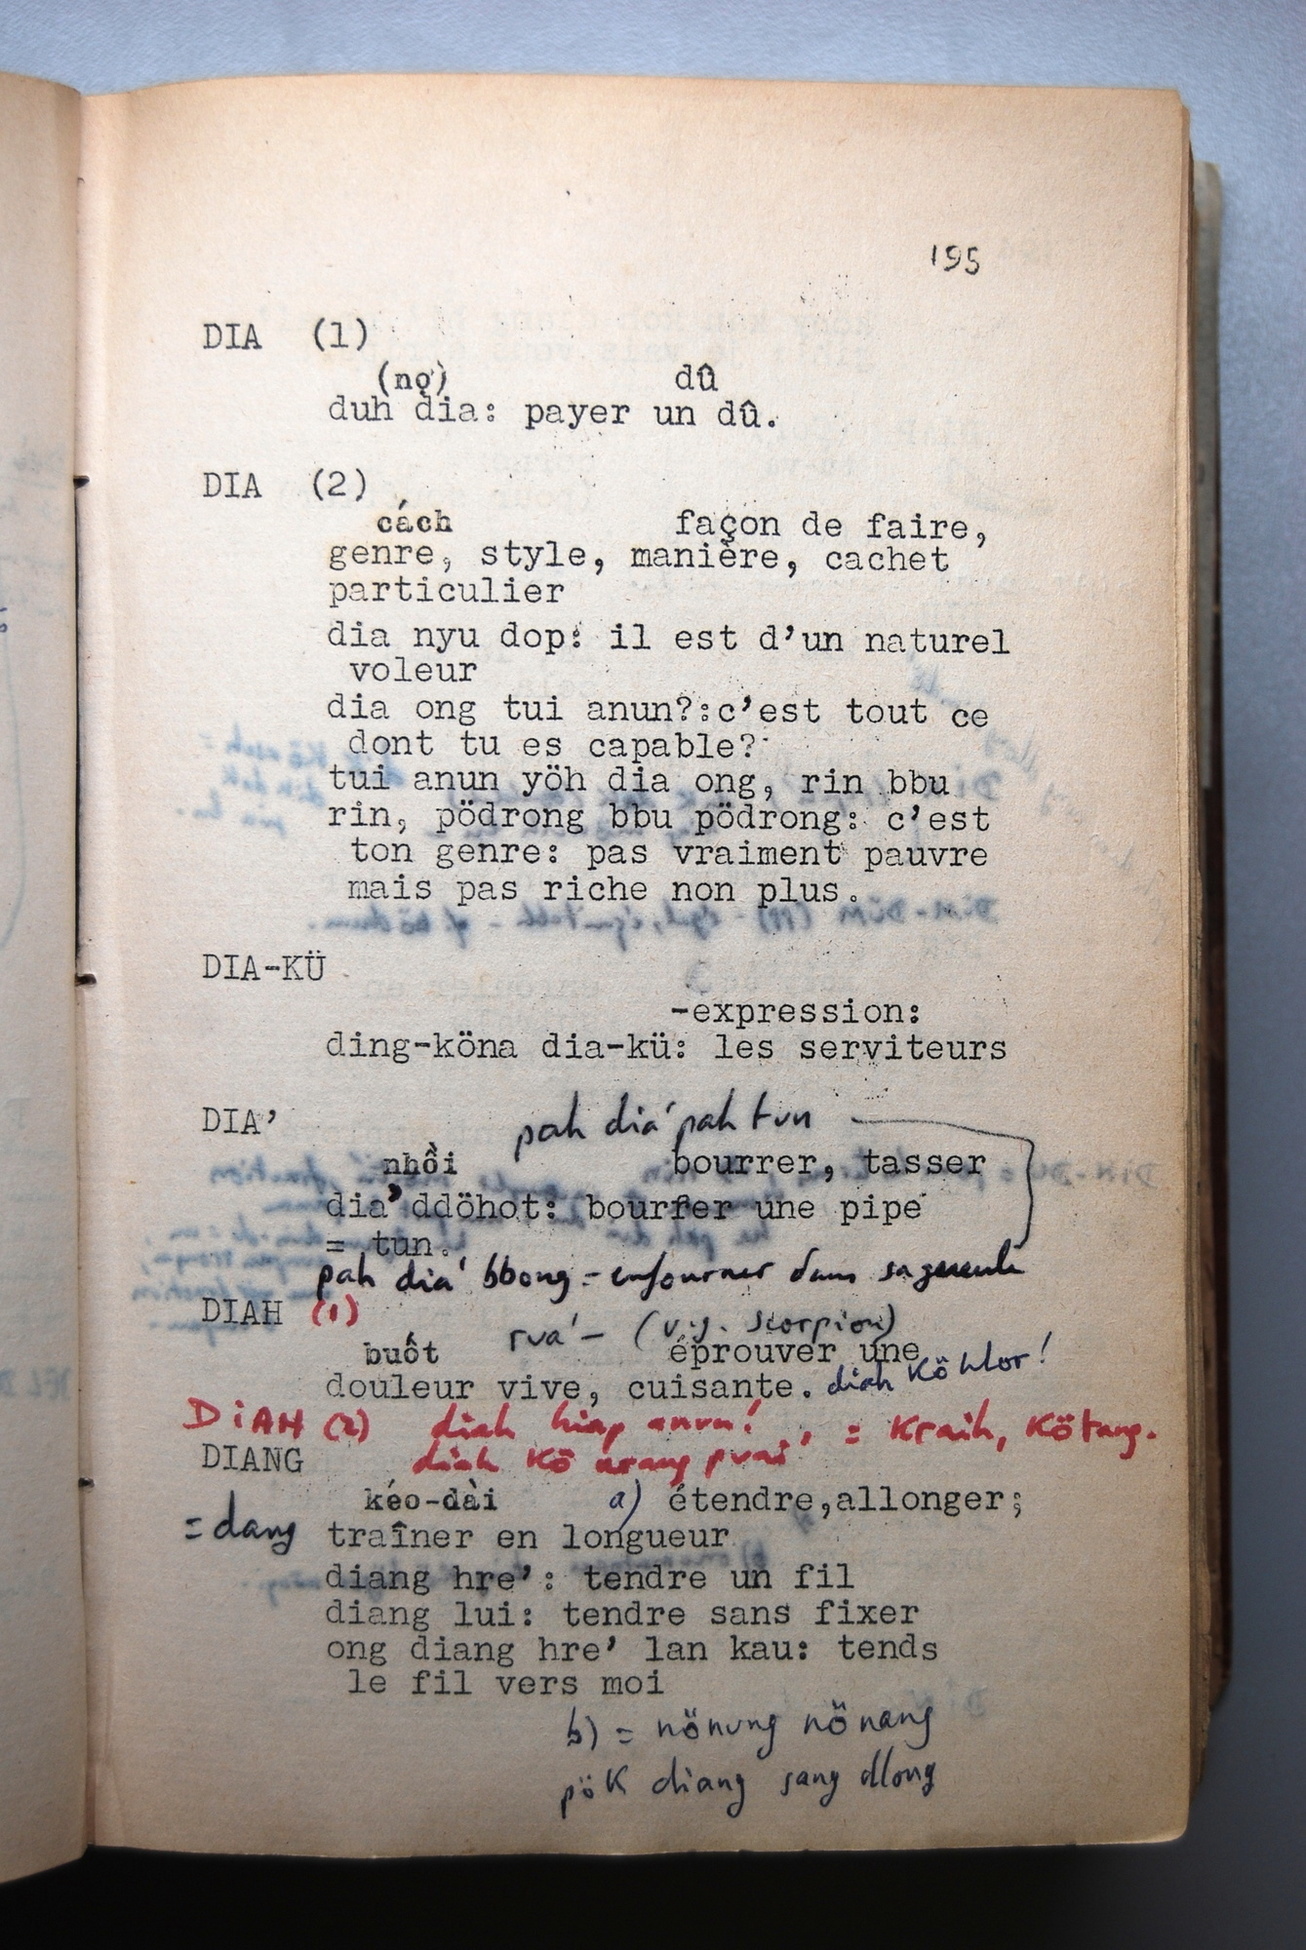 195
DIA (1)
(nợ) dû
duh dia: payer un dû.
DIA (2)
cách façon de faire,
genre, style, manière, cachet
particulier
dia nyu dop: il est d'un naturel
voleur
dia ong tui anun?:c'est tout ce
dont tu es capable?
tui anun yöh dia ong, rin bbu
rin, pödrong bbu pödrong: c'est
ton genre: pas vraiment pauvre
mais pas riche non plus.
DIA-KÜ
-expression:
ding-köna dia-kü: les serviteurs
DIA' pah dia' pah tun
nhồi bourrer, tasser
dia' ddöhot: bourrer une pipe
= tun.
pah dia' bbong = enfourner dans sa gueule
DIAH (1)
rua' - (v.g. scorpion)
buốt éprouver une
douleur vive, cuisante. diah Kö hlor!
DiAH (2) diah hiap anun! , = Kraih, Kötang.
DIANG diah Kö arang pvai'
kéo-dài a) étendre,allonger;
= dang traîner en longueur
diang hre': tendre un fil
diang lui: tendre sans fixer
ong diang hre' lan kau: tends
le fil vers moi
b) = nönung nönang
pöK diang sang dlong